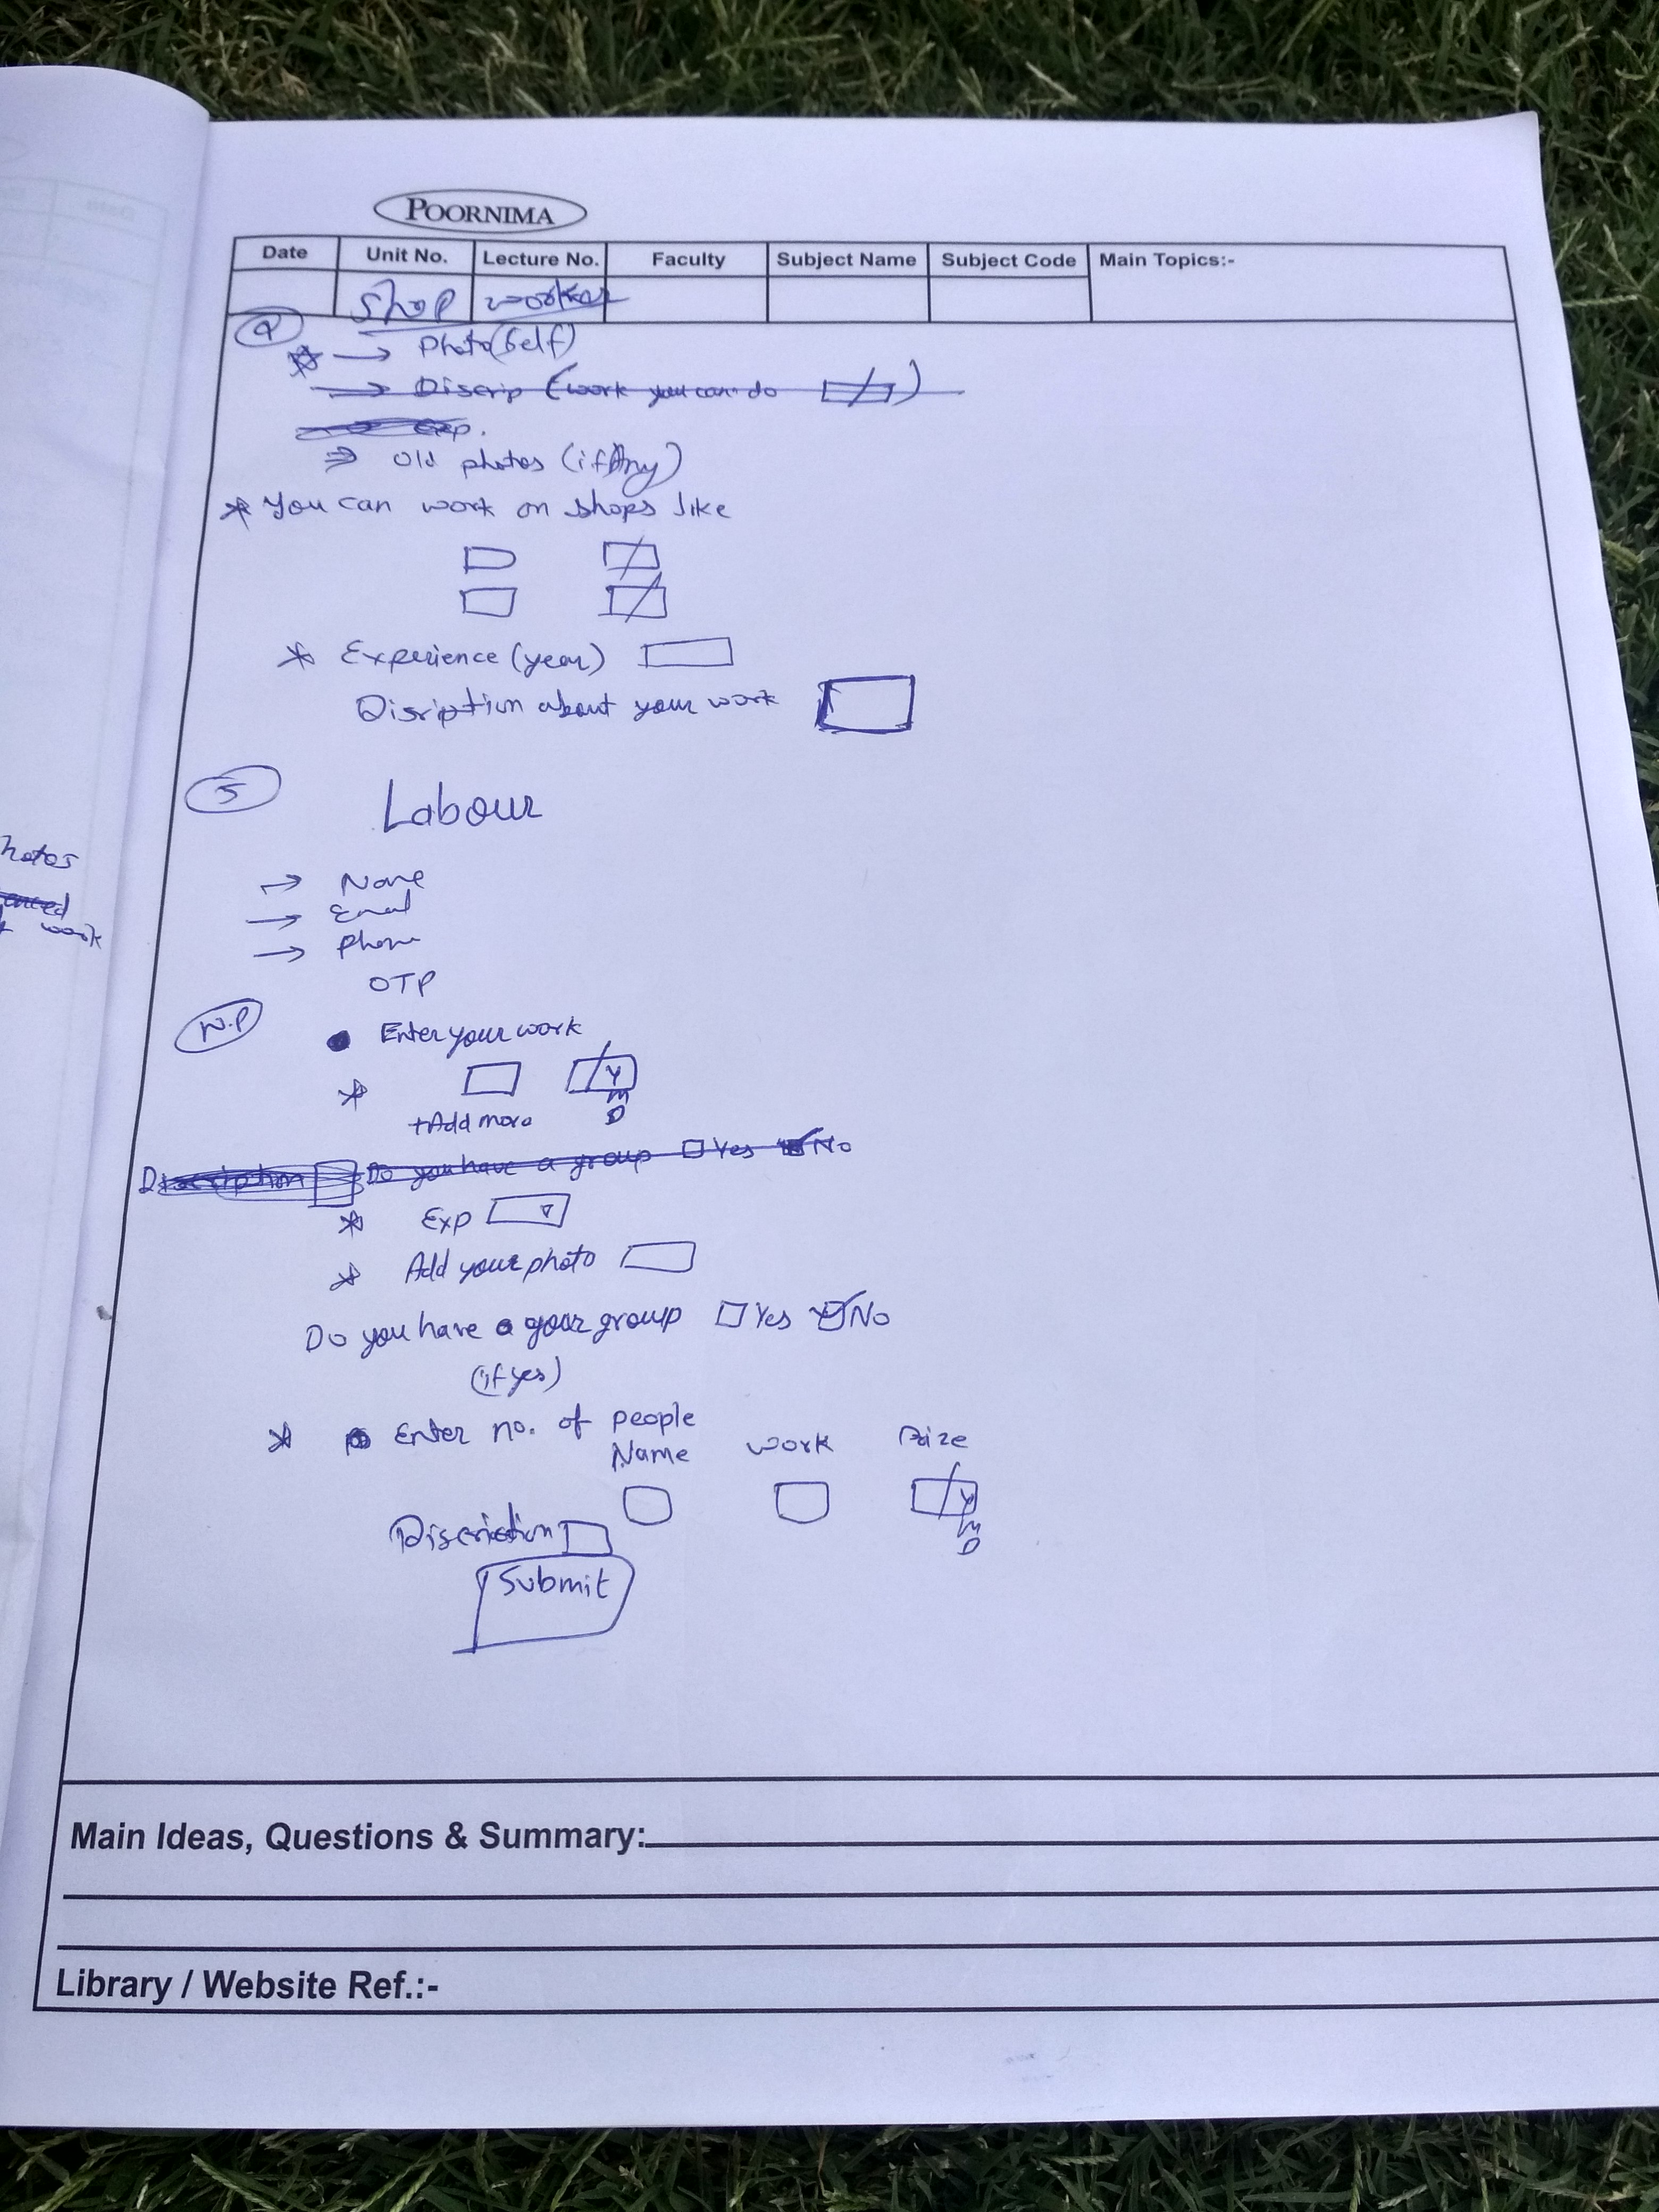 POORNIMA
Date Unit No. Lecture No. Faculty Subject Name Subject Code Main Topics:-
Shop worker
Photo(Self)
Discrip (work you can do )
exp.
Old photos (if Any)
* You can work on shops like
* Experience (year)
Disription about your work
5 Labour
hotos
→ Name
→ Email
work
→ Phone
OTP
N.P
Enter your work
* Y
M
D
+Add more
Discription Do you have a group Yes No
* Exp
* Add your photo
Do you have a your group Yes No
(if yes)
* Enter no. of people
Name work Prize
Y
M
D
Discription
Submit
Main Ideas, Questions & Summary:
Library / Website Ref.:-